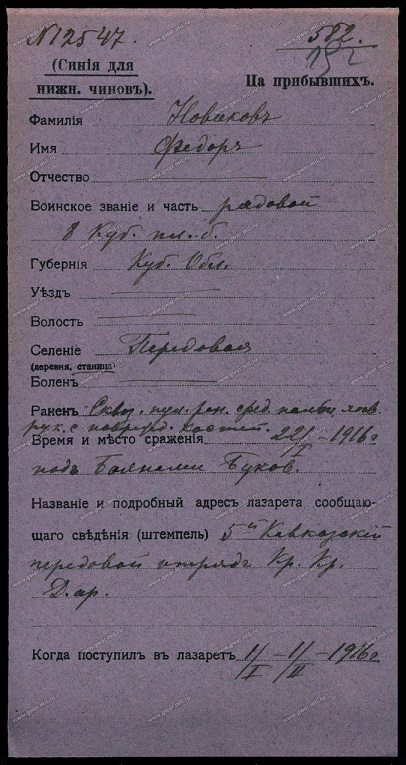 №12547. 582.
(Синія для 152
нижн. чиновъ). На прибывшихъ.
Фамилія Новиковъ
Имя Федоръ
Отчество
Воинское званіе и часть рядовой
8 Куб. пл. б.
Губернія Куб. Обл.
Уѣздъ
Волость
Селеніе Передовая
(деревня, станица)
Боленъ
Раненъ Сквоз. пул. ран. сред. пальц. лѣв.
рук. с поврежд. костей.
Время и мѣсто сраженія 22/I – 1916 г
подъ Боянами Буков.
Названіе и подробный адресъ лазарета сообщаю-
щаго свѣдѣнія (штемпель) 5й Кавказскій
передовой отрядъ Кр. Кр.
Д.ар.
Когда поступилъ въ лазаретъ 11/I – 1/II – 1916 г